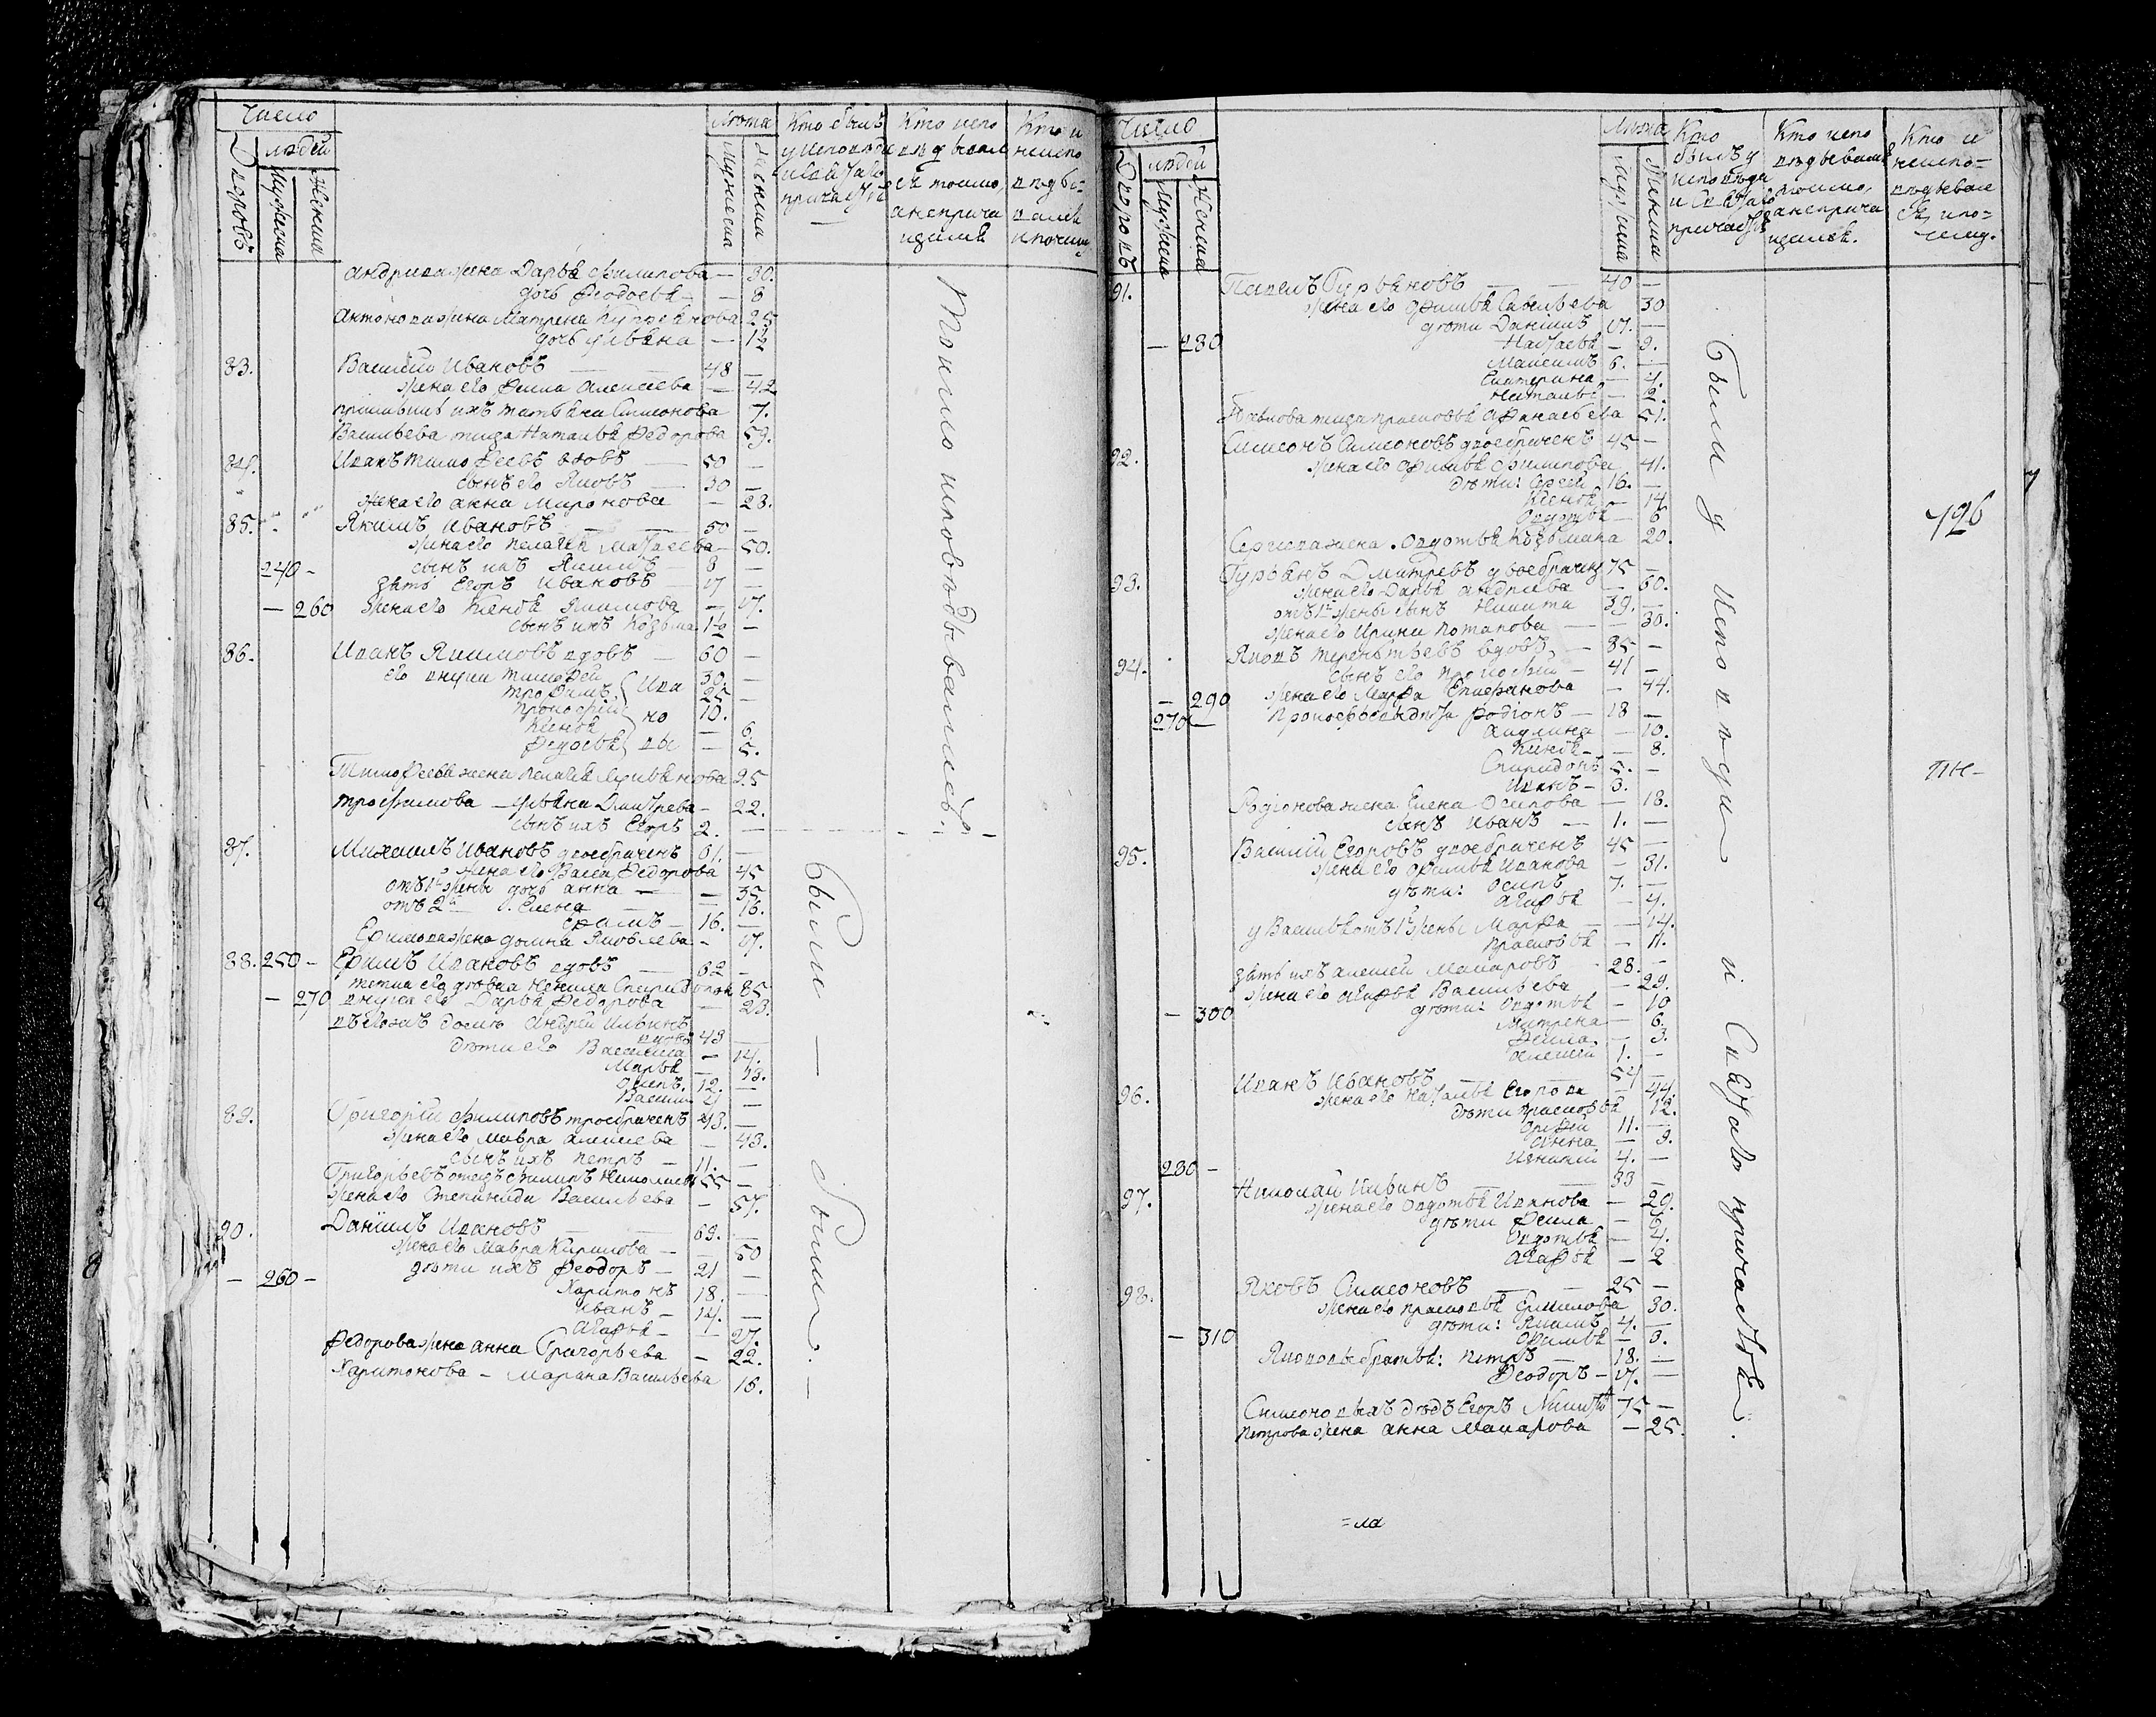 Число
Лѣта
Кто былъ
Кто испо
Кто и
людей
у исповѣди
вѣдывал
неиспо
Дворовъ
Мужеска
Женска
Мужеска
Женска
и святаго
ся токмо,
вѣды-
причастія
а неприча
вался
щался
и почему
Андреева жена Дарья Филипова — 30.
дочь Федосья — 8
Антонова жена Матрена Купреянова 25
дочь Ульяна — 12
83. Василей Ивановъ 48 —
жена его Фекла Алексеева — 42
Татьяна Симонова 7.
Васильева теща Наталья Федорова 59.
84. Иванъ Тимофеевъ вдовъ 50 —
сынъ его Яковъ 30 —
жена его Анна Миронова — 28.
85. Якимъ Ивановъ 50 —
жена его Пелагея Матвеева — 50.
240 — сынъ ихъ 8 —
зять Егоръ Ивановъ 17 —
— 260 жена его Ксенья Якимова — 17.
сынъ ихъ Козьма 1½ —
86. Иванъ Якимовъ вдовъ 60 —
его внуки Тимофей 30. —
Трофимъ 25 —
Прокофий 10.
Ксенья — 6.
Федосья — 5.
Ива
но
вы
Тимофеева жена Пелагея 25
Трофимова — Ульяна Дмитрева — 22.
сынъ ихъ Егоръ 2. —
87. Михайлъ Ивановъ двоебраченъ 61. —
жена его Васса Федорова 45
отъ 1й жены дочь Анна — 35
отъ 2й — Елена — 16.
Ефимъ — 16. —
Ефимова жена Домна Яковлева — 17.
88. 250 — Ефимъ Ивановъ вдовъ 62 —
тетка его девка Ненила Спиридонова 85
— 270 внука его Дарья Федорова — 23.
въ его же доме Андрей Ильинъ
вдовъ 43 —
дети его Василиса — 14.
Марья — 13.
Осипъ. 12. —
Василий 21 —
89. Григорий Филиповъ троебраченъ 43. —
жена его Мавра Алексеева — 43.
сынъ ихъ Петръ — 11. —
Григорьевъ отецъ Филипъ Николаевъ 55 —
жена его Степанида Васильева — 57.
90. Данiилъ Ивановъ 69. —
жена его Мавра Кирилова — 50
— 260 — дети ихъ Феодоръ — 21 —
Харитонъ 18. —
Иванъ — 14. —
Агафья — 27.
Федорова жена Анна Григорьева — 22.
Харитонова — Марина Васильева 16.
Токмо исповѣдывались.
Были — Были —
Число
Лѣта
Кто
Кто испо
Кто и
людей
былъ у
вѣдывался
неиспо-
Дворовъ
Мужеска
Женска
Мужеска
Женска
исповѣди
токмо,
вѣдывал
и святаго
а неприча
ся, и по-
причастія
щался.
чему.
91. Павелъ Гурьяновъ 40 —
жена его Фимья Савельева 30
дети Данiилъ 17. —
— 280 Настасья — 9.
Максимъ 6. —
Екатерина — 4.
Наталья — 2.
Павлова теща Прасковья Афанасьева 51.
92. Симеонъ Симеоновъ двоебраченъ 45 —
жена его Фимья Филипова 41.
дети: Сергей 16. —
Ксенья — 14.
Авдотья — 6
Сергеева жена Авдотья Козьмина 20.
93. Гурьянъ Дмитревъ двоебраченъ 75 —
жена его Дарья Андреева — 60.
отъ 1й жены сынъ Никита 39. —
жена его Ирина Потапова — 30.
94. Яковъ Терентьевъ вдовъ — 85 —
сынъ его Прокофий — 41 —
— 290 жена его Марфа Епифанова — 44.
270 — Прокофьевы дети Родiонъ — 18 —
Акулина — 10.
Ксенья — 8.
Спиридонъ 5. —
Иванъ — 3.
Родiонова жена Елена Осипова — 18.
сынъ Иванъ — 1. —
95. Василий Егоровъ двоебраченъ 45 —
жена его Фимья Иванова — 31.
дети: Осипъ 7. —
Агафья — 4.
у Василья отъ 1й жены Марфа — 14.
Прасковья — 11.
зять ихъ Алексей Макаровъ 28. —
жена его Агафья Васильева — 29.
— 300 дети: Авдотья — 10
Матрена — 6.
Фекла — 3.
Алексей 1. —
96. Иванъ Ивановъ 54 —
жена его Наталья Егорова — 44.
дети Прасковья 12.
11. —
Анна — 9.
280 — Игнатий 4. —
97. Николай Ильинъ 33 —
жена его Авдотья Иванова — 29.
дети Фекла — 6.
Авдотья — 4.
Агафья — 2
98. Яковъ Симеоновъ 25 —
жена его Прасковья Ермилова 30.
дети: Якимъ 4. —
— 310 Фимья — 3.
Яковлевы братья: Петръ — 18. —
Феодоръ — 17. —
Симеоновыхъ дедъ Егоръ Никит 75 —
Петрова жена Анна Макарова — 25.
Были у исповѣди и святаго причастія.
496
=ла